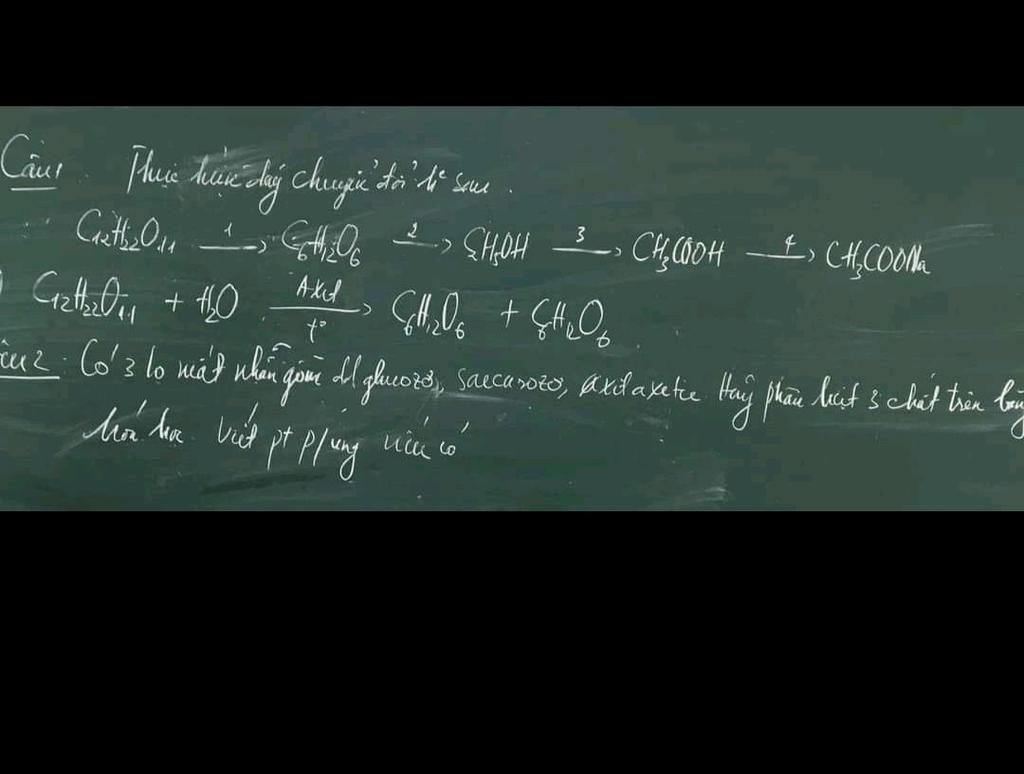 Câu 1. Thực hiện dãy chuyển đổi h² sau.
C₁₂H₂₂O₁₁ —1→ C₆H₁₂O₆ —2→ C₂H₅OH —3→ CH₃COOH —4→ CH₃COONa
C₁₂H₂₂O₁₁ + H₂O —Axit/t°→ C₆H₁₂O₆ + C₆H₁₂O₆.
Câu 2. Có 3 lọ mất nhãn gồm dd glucozơ, saccarozơ, axit axetic Hãy phân biết 3 chất trên bằng
hóa học viết pt p/ứng nếu có